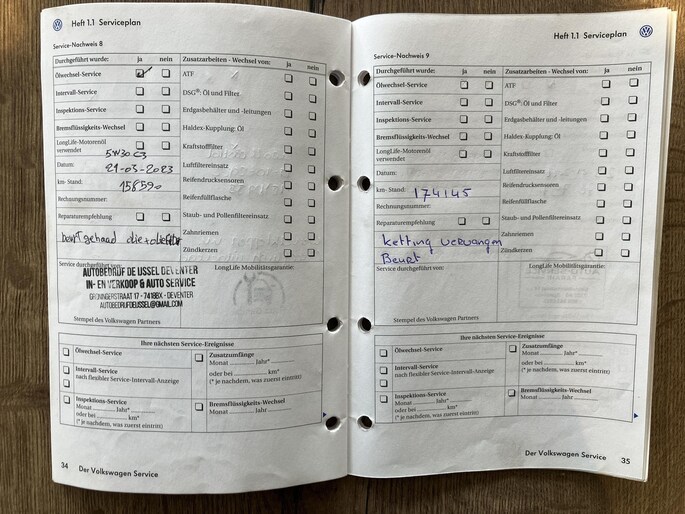 Heft 1.1 Serviceplan
Service-Nachweis 8
Durchgeführt wurde: ja nein
Ölwechsel-Service
Intervall-Service
Inspektions-Service
Bremsflüssigkeits-Wechsel
LongLife-Motorenöl
verwendet
5W30 C3
Datum: 21-03-2023
km- Stand: 158590
Rechnungsnummer:
Reparaturempfehlung
Zusatzarbeiten - Wechsel von: ja nein
ATF
DSG®: Öl und Filter
Erdgasbehälter und -leitungen
Haldex-Kupplung: Öl
Kraftstofffilter
Luftfiltereinsatz
Reifendrucksensoren
Reifenfüllflasche
Staub- und Pollenfiltereinsatz
Zahnriemen
Zündkerzen
Service durchgeführt von:
LongLife Mobilitätsgarantie:
AUTOBEDRIJF DE IJSSEL DEVENTER
IN- EN VERKOOP & AUTO SERVICE
GRONINGERSTRAAT 17 - 7418BX - DEVENTER
AUTOBEDRIJFDEIJSSEL@GMAIL.COM
Stempel des Volkswagen Partners
Ihre nächsten Service-Ereignisse
Ölwechsel-Service
Intervall-Service
nach flexibler Service-Intervall-Anzeige
Inspektions-Service
Monat Jahr*
oder bei km*
(* je nachdem, was zuerst eintritt)
Zusatzumfänge
Monat Jahr*
oder bei km*
(* je nachdem, was zuerst eintritt)
Bremsflüssigkeits-Wechsel
Monat Jahr
34 Der Volkswagen Service
Heft 1.1 Serviceplan
Service-Nachweis 9
Durchgeführt wurde: ja nein
Ölwechsel-Service
Intervall-Service
Inspektions-Service
Bremsflüssigkeits-Wechsel
LongLife-Motorenöl
verwendet
Datum:
km- Stand: 174145
Rechnungsnummer:
Reparaturempfehlung
ketting vervangen
Beurt
Zusatzarbeiten - Wechsel von: ja nein
ATF
DSG®: Öl und Filter
Erdgasbehälter und -leitungen
Haldex-Kupplung: Öl
Kraftstofffilter
Luftfiltereinsatz
Reifendrucksensoren
Reifenfüllflasche
Staub- und Pollenfiltereinsatz
Zahnriemen
Zündkerzen
Service durchgeführt von:
LongLife Mobilitätsgarantie:
Stempel des Volkswagen Partners
Ihre nächsten Service-Ereignisse
Ölwechsel-Service
Intervall-Service
nach flexibler Service-Intervall-Anzeige
Inspektions-Service
Monat Jahr*
oder bei km*
(* je nachdem, was zuerst eintritt)
Zusatzumfänge
Monat Jahr*
oder bei km*
(* je nachdem, was zuerst eintritt)
Bremsflüssigkeits-Wechsel
Monat Jahr
Der Volkswagen Service 35